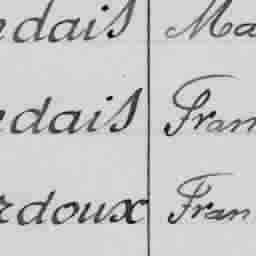 dais Ma
edais Fran
rdoux Fran